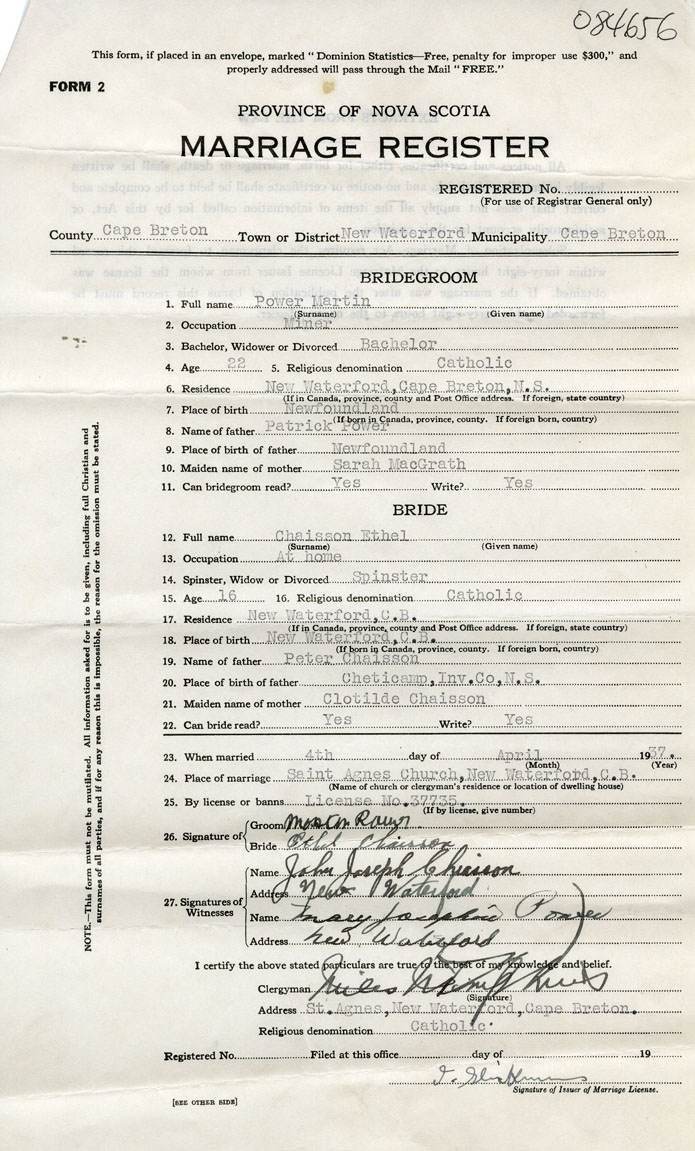 084656
This form, if placed in an envelope, marked "Dominion Statistics—Free, penalty for improper use $300," and
properly addressed will pass through the Mail "FREE."
FORM 2
PROVINCE OF NOVA SCOTIA
MARRIAGE REGISTER
REGISTERED No.
(For use of Registrar General only)
County Cape Breton Town or District New Waterford Municipality Cape Breton
BRIDEGROOM
1. Full name Power Martin
(Surname) (Given name)
2. Occupation Miner
3. Bachelor, Widower or Divorced Bachelor
4. Age 22 5. Religious denomination Catholic
6. Residence New Waterford, Cape Breton, N.S.
(If in Canada, province, county and Post Office address. If foreign, state country)
7. Place of birth Newfoundland
(If born in Canada, province, county. If foreign born, country)
8. Name of father Patrick Power
9. Place of birth of father Newfoundland
10. Maiden name of mother Sarah MacGrath
11. Can bridegroom read? Yes Write? Yes
BRIDE
12. Full name Chaisson Ethel
(Surname) (Given name)
13. Occupation At home
14. Spinster, Widow or Divorced Spinster
15. Age 16 16. Religious denomination Catholic
17. Residence New Waterford, C.B.
(If in Canada, province, county and Post Office address. If foreign, state country)
18. Place of birth New Waterford, C.B.
(If born in Canada, province, county. If foreign born, country)
19. Name of father Peter Chaisson
20. Place of birth of father Cheticamp, Inv.Co, N.S.
21. Maiden name of mother Clotilde Chaisson
22. Can bride read? Yes Write? Yes
23. When married 4th day of April 1937.
(Month) (Year)
24. Place of marriage Saint Agnes Church, New Waterford, C.B.
(Name of church or clergyman's residence or location of dwelling house)
25. By license or banns License No. 37735.
(If by license, give number)
26. Signature of Groom Martin Power
Bride Ethel Chaisson
27. Signatures of Witnesses
Name John Joseph Chiasson
Address New Waterford
Name Mary Josephine Power
Address New Waterford
I certify the above stated particulars are true to the best of my knowledge and belief.
Clergyman
(Signature)
Address St. Agnes, New Waterford, Cape Breton.
Religious denomination Catholic.
Registered No. Filed at this office day of 19
Signature of Issuer of Marriage License.
[SEE OTHER SIDE]
NOTE.—This form must not be mutilated. All information asked for is to be given, including full Christian and
surnames of all parties, and if for any reason this is impossible, the reason for the omission must be stated.